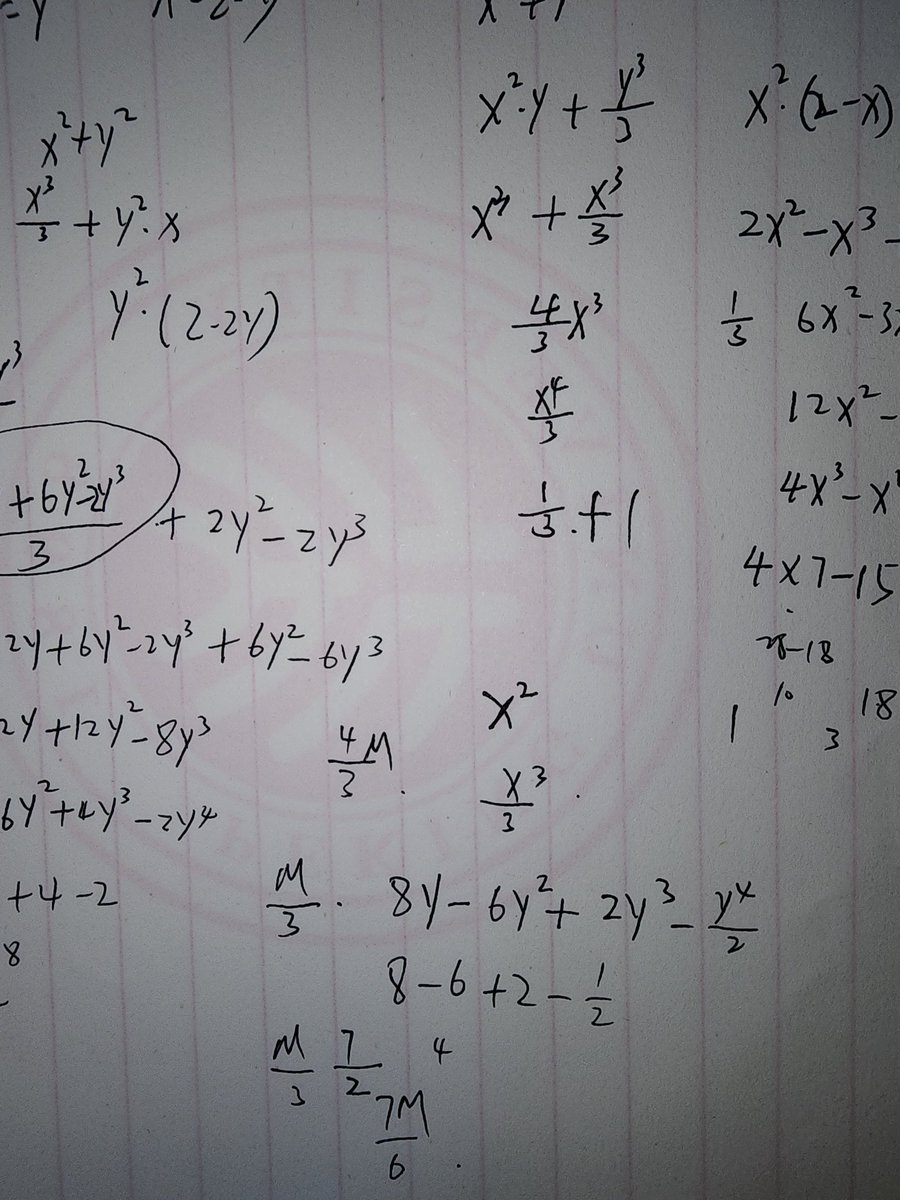 x²+y²
x³/3 + y²·x
y²·(2-2y)
+6y²-2y³/3 + 2y²-2y³
2y+6y²-2y³+6y²-6y³
2y+12y²-8y³
6y²+4y³-2y⁴
+4-2
8
4/3 M.
x²·y + y³/3
x³ + x³/3
4/3 x³
x⁴/3
1/3 · + 1
x²
x³/3 ·
M/3 · 8y-6y²+2y³-y⁴/2
8-6+2-1/2
M/3 7/2 4
7M/6 .
x²·(2-x)
2x²-x³-
1/3 6x²-3
12x²-
4x³-x
4×7-15
28-18
10
1 3 18